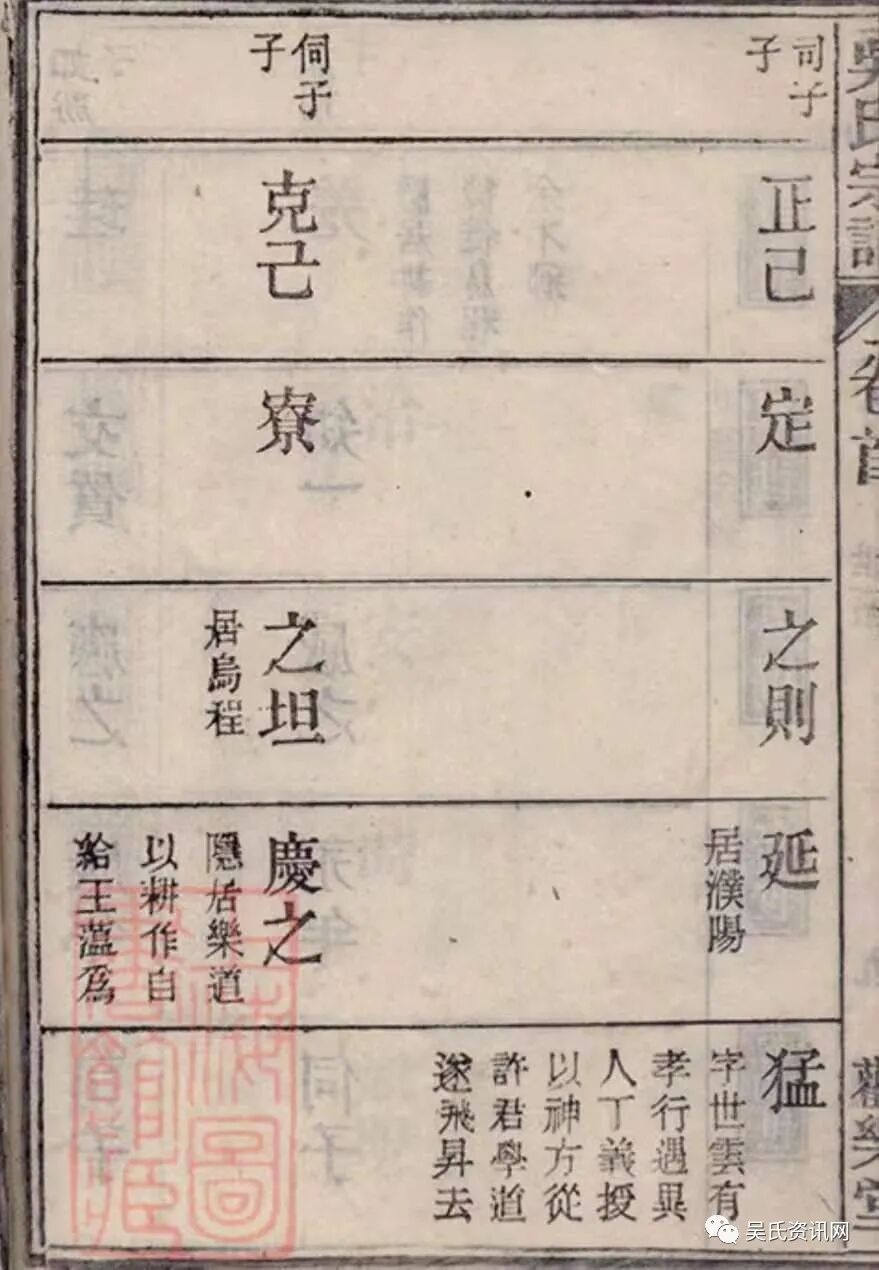 吳氏宗譜
卷首
司子
子
正己
定
之則
延
居濮陽
猛
字世雲有
孝行遇異
人丁義授
以神方從
許君學道
遂飛昇去
伺子
子
克己
寮
之坦
居烏程
慶之
隱居樂道
以耕作自
給王蕰為
吴氏资讯网